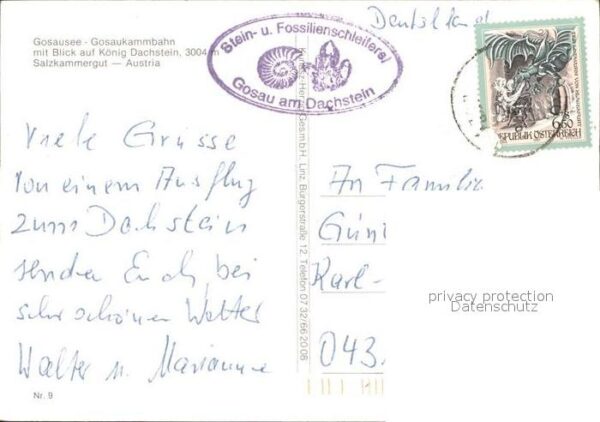 Gosausee - Gosaukammbahn
mit Blick auf König Dachstein, 3004 m
Salzkammergut — Austria
Stein- u. Fossilienschleiferei
Gosau am Dachstein
Deutschland
6.50
REPUBLIK ÖSTERREICH
Viele Grüsse
von einem Ausflug
zum Dachstein
senden Euch bei
sehr schönem Wetter
Walter u. Marianne
Nr. 9
Ges.m.b.H., Linz, Burgerstraße 12, Telefon 0732/66 20 08
An Familie
Günt
Karl-
043
privacy protection
Datenschutz